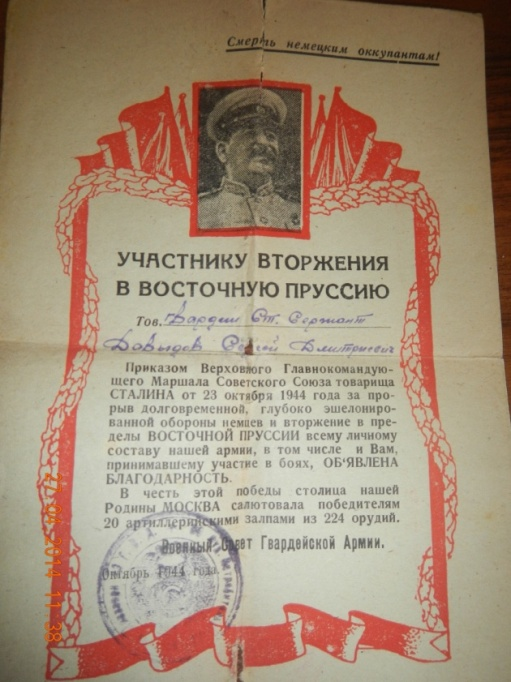 Смерть немецким оккупантам!
УЧАСТНИКУ ВТОРЖЕНИЯ
В ВОСТОЧНУЮ ПРУССИЮ
Тов. Гвардии Ст. Сержант
Давыдов Сергей Дмитриевич
Приказом Верховного Главнокомандую-
щего Маршала Советского Союза товарища
СТАЛИНА от 23 октября 1944 года за про-
рыв долговременной, глубоко эшелониро-
ванной обороны немцев и вторжение в пре-
делы ВОСТОЧНОЙ ПРУССИИ всему личному
составу нашей армии, в том числе и Вам,
принимавшему участие в боях, ОБ'ЯВЛЕНА
БЛАГОДАРНОСТЬ.
В честь этой победы столица нашей
Родины МОСКВА салютовала победителям
20 артиллерийскими залпами из 224 орудий.
Военный Совет Гвардейской Армии.
Октябрь 1944 года
2014 11 38